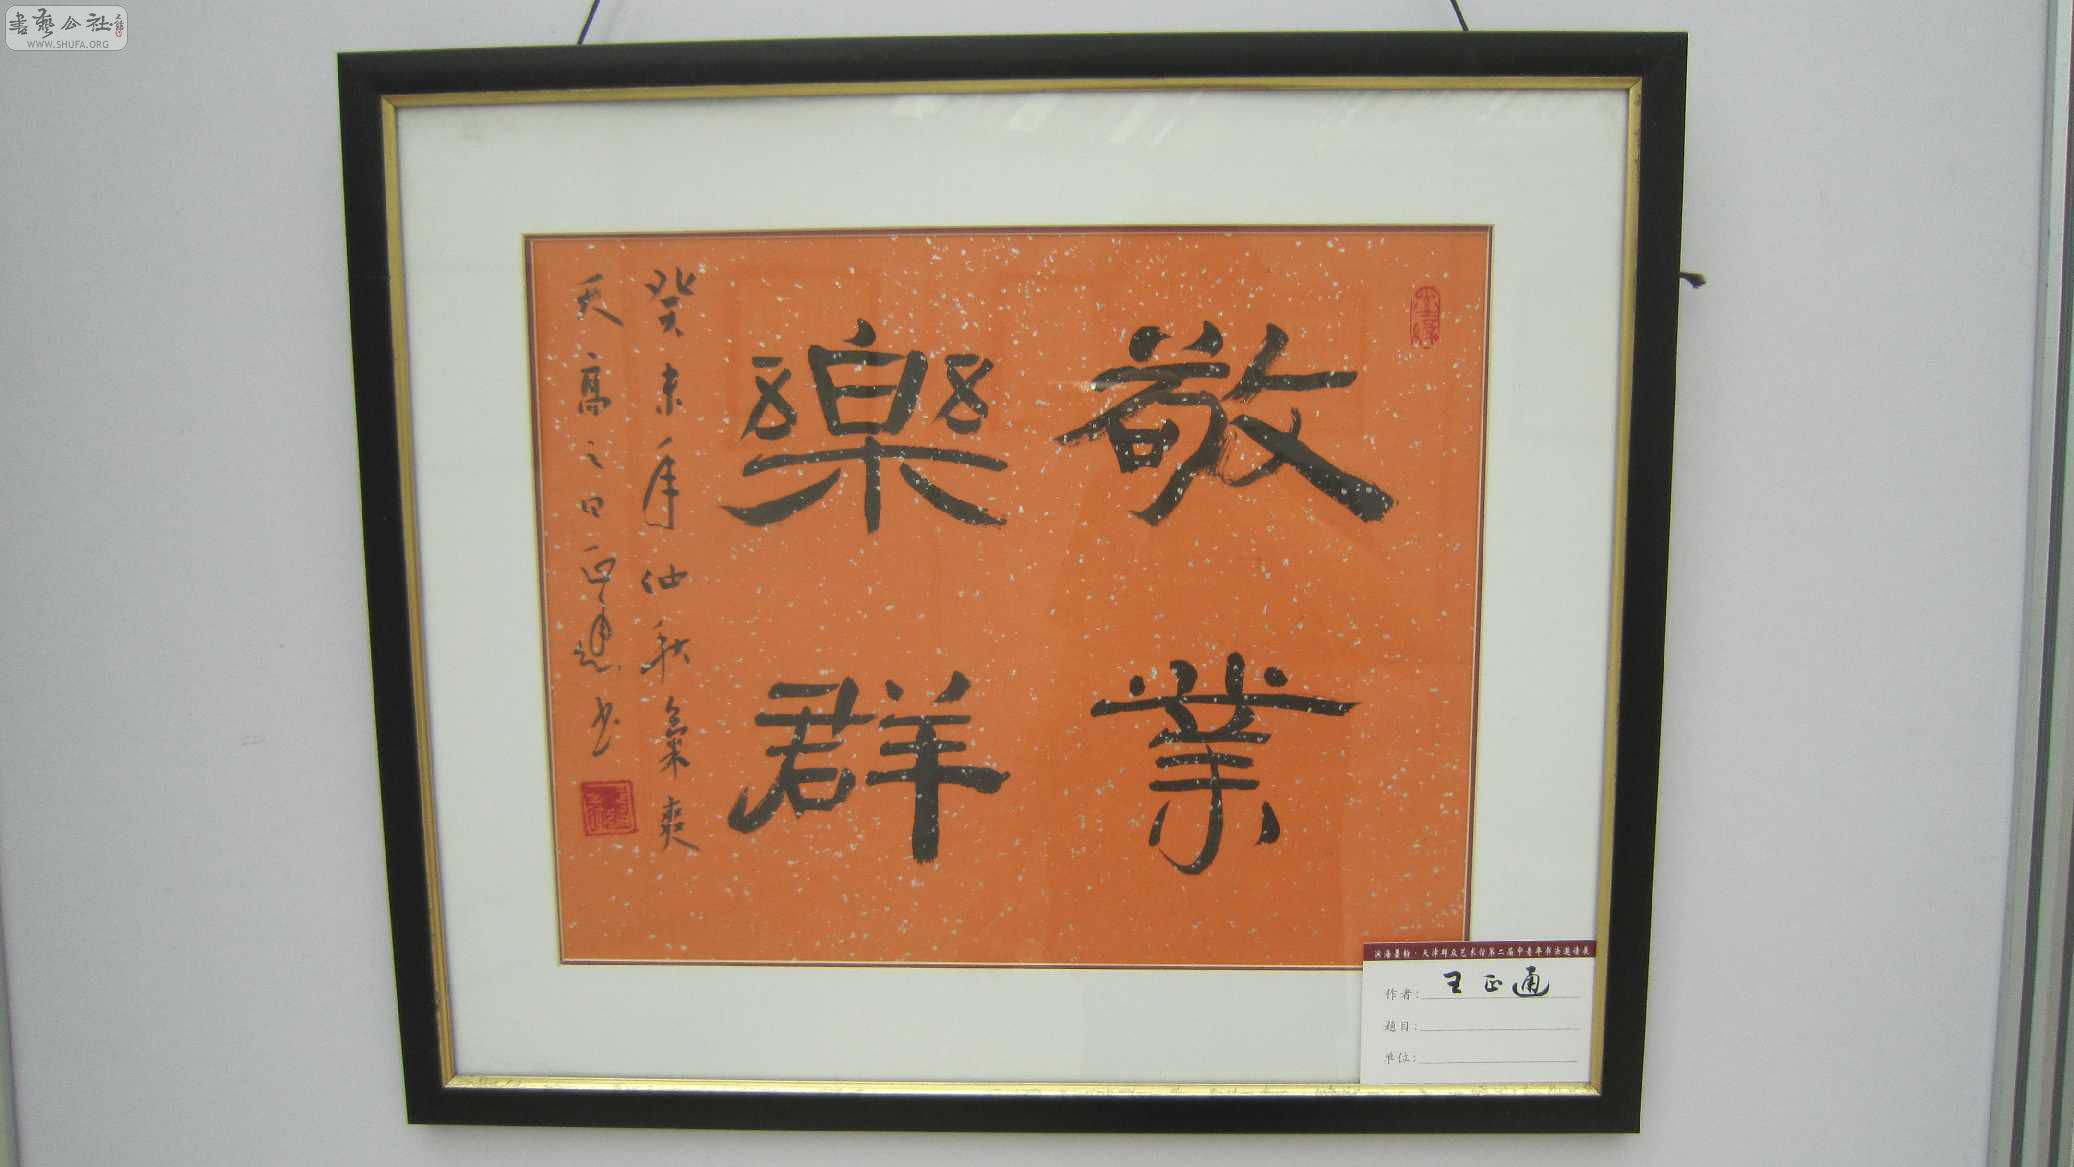 書藝公社
WWW.SHUFA.ORG
敬業
樂群
癸未年仲秋氣爽
天高之日正通书
滨海墨韵·天津群众艺术馆第二届中青年书法邀请展
作者：王正通
题目：
单位：